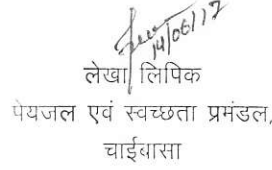 14/06/17
लेखा लिपिक
पेयजल एवं स्वच्छता प्रमंडल,
चाईबासा